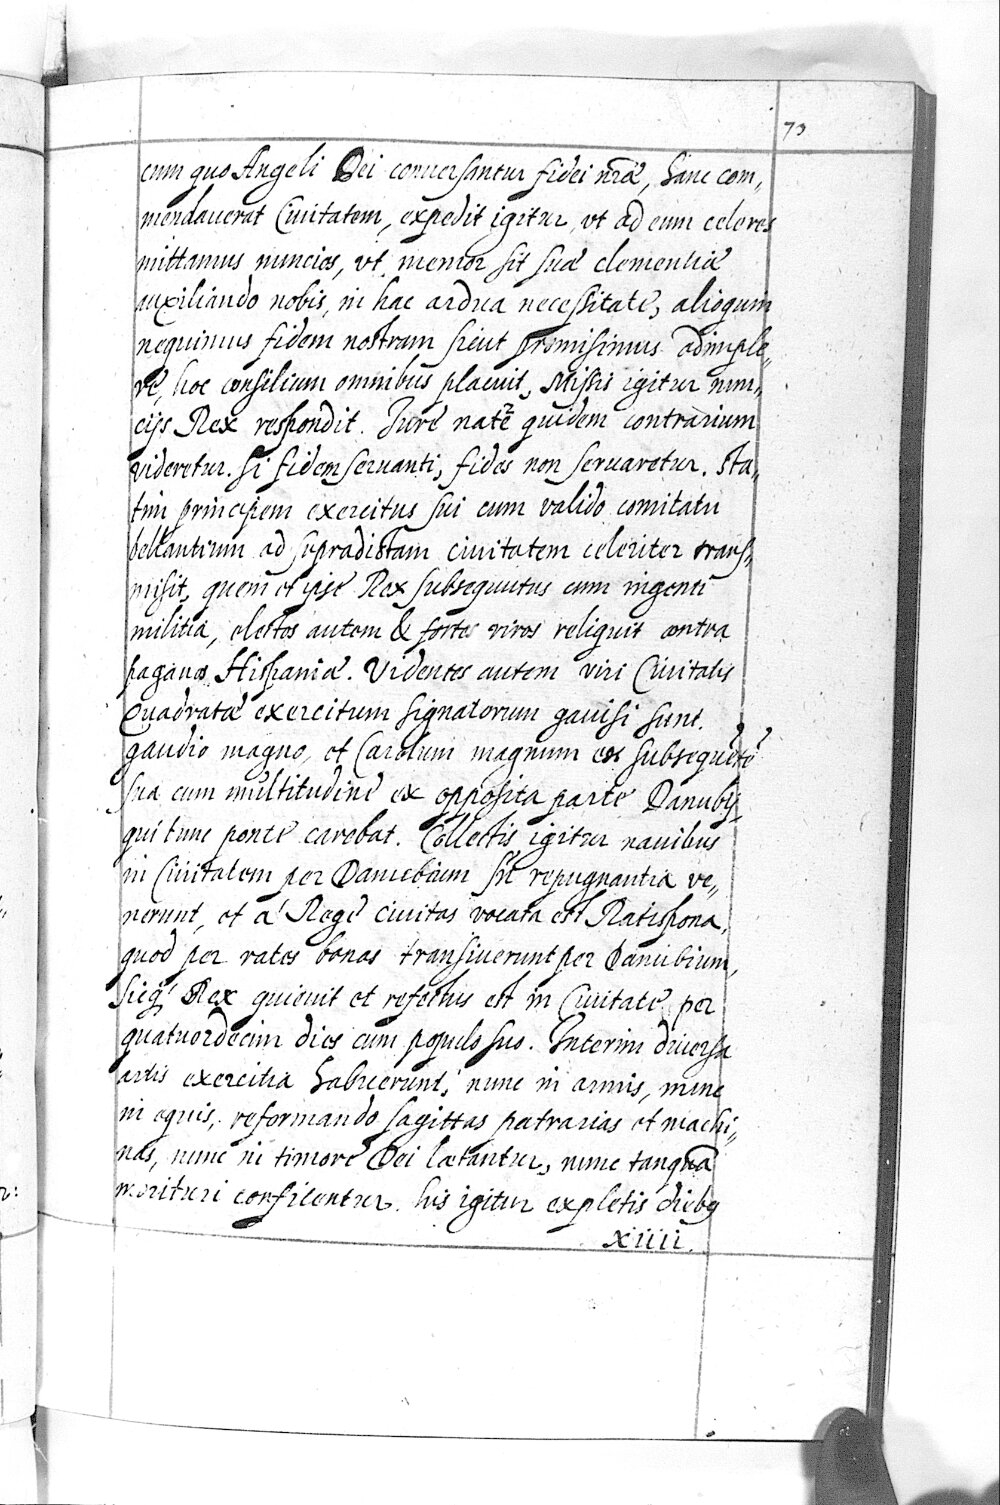 73
cum quo Angeli Dei conuersantur fidei nr̃æ, hanc com„
mendauerat Ciuitatem, expedit igitur, vt ad eum celeres
mittamus nuncios, vt memor sit suæ clementiæ
auxiliando nobis, in hac ardua necessitate, alioquin
nequimus fidem nostram sicut promisimus adimple„
re, hoc consilium omnibus placuit, Missis igitur nun„
cijs Rex respondit. Jure natē quidem contrarium
videretur. Si fidem seruanti, fides non seruaretur. Sta„
tim principem exercitus sui cum valido comitatu
bellantium ad supradictam ciuitatem celeriter trans„
misit, quem et ipse Rex subsequutus cum ingenti
militia, electos autem & fortes viros reliquit contra
paganos Hispaniæ. Videntes autem viri Ciuitatis
Quadratæ exercitum signatorum gauisi sunt.
gaudio magno, et Carolum magnum ex subsequētē
sua cum multitudine ex opposita parte Danubij
qui tunc ponte carebat. Collectis igitur nauibus
in Ciuitatem per Danubium sine repugnantia ve„
nerunt, et a' Rege ciuitas vocata est Ratispona,
quod per rates bonas transiuerunt per Danubium,
sicq' Rex quieuit et refectus est in Ciuitate per
quatuordecim dies cum populo suo. Interim diuersa
artis exercitia habuerunt, nunc in armis, nunc
in equis, reformando sagittas petrarias et machi„
nas, nunc in timore Dei lætantur, nunc tanquā
morituri confitentur. his igitur expletis dieb9
xiiii.